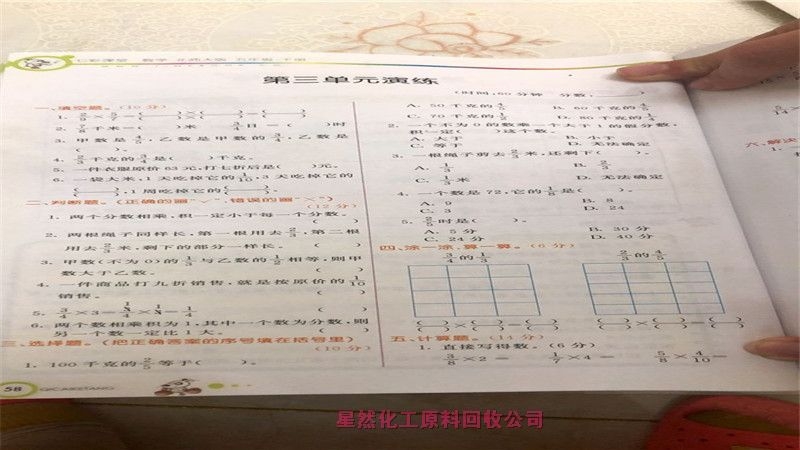 七彩课堂 数学 北师大版 五年级 下册
第三单元演练
(时间:60分钟 分数:)
一、填空题。(10分)
3. 甲数是 ，乙数是甲数的3/4，乙数是
( )。
4. 千克的 是( )千克。
5. 一件衣服原价63元,打七折后是( )元。
6. 一袋大米,1天吃掉它的1/10,3天吃掉它的
( )/( ),1周吃掉它的( )/( )。
二、判断题。(正确的画"√",错误的画"×")
(12分)
1. 两个分数相乘,积一定小于每一个分数。
( )
2. 两根绳子同样长,第一根用去2/3,第二根
用去2/3米,剩下的部分一样长。 ( )
3. 甲数(不为0)的1/3与乙数的1/2相等,则甲
数大于乙数。 ( )
4. 一件商品打九折销售,就是按原价的1/10
销售。 ( )
6. 两个数相乘积为1,其中一个数为分数,则
另一个数一定比1大。 ( )
三、选择题。(把正确答案的序号填在括号里)
(10分)
1. 100千克的2/5等于( )。
A. 50千克的4/5 B. 60千克的
C. 70千克的 D. 80千克的1/4
2. 一个不为0的数乘一个大于1的假分数,
积一定( )这个数。
A. 大于 B. 小于
C. 等于 D. 无法确定
3. 一根绳子剪去2/3米,还剩下( )。
A. 1/3 B. 2/3
C. 1/3米 D. 无法确定
4. 一个数是72,它的1/8是( )。
A. 9 B. 8
C. 3 D. 24
5. 时是( )。
A. 5分 B. 30分
C. 24分 D. 40分
四、涂一涂,算一算。(6分)
3/4的1/3 2/3的4/5
( )/( )×( )/( )=( )/( ) ( )/( )×( )/( )=( )/( )
五、计算题。(14分)
1. 直接写得数。(6分)
3/8×2= 1/7×4= 5/8×4/10=
六、解决
58 QICAIKETANG
星然化工原料回收公司